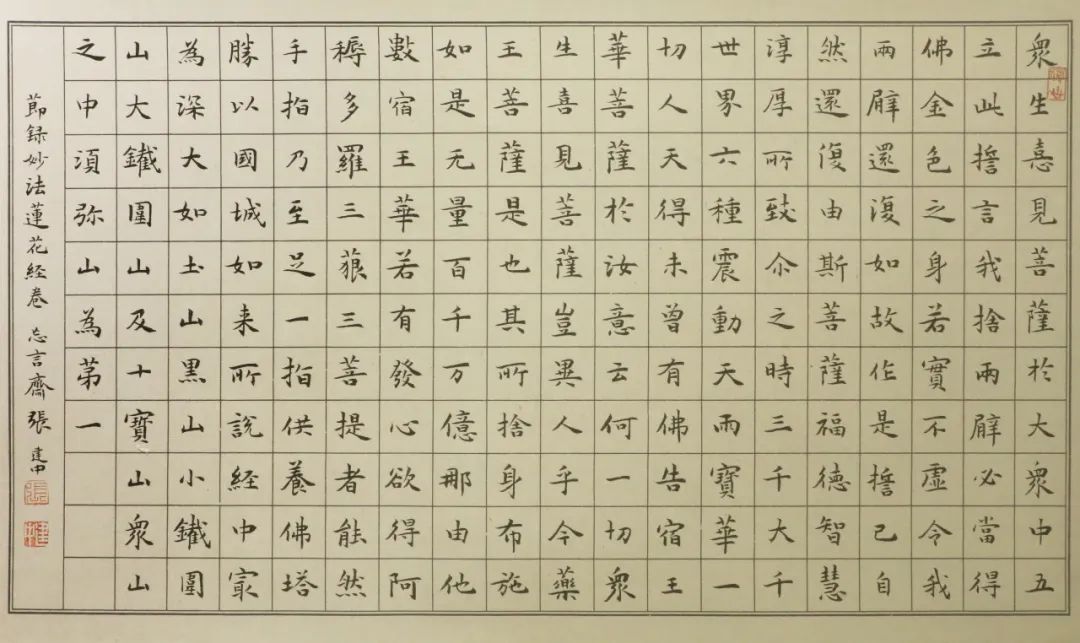 衆生憙見菩薩於大衆中五
立此誓言我捨兩臂必當得
佛金色之身若實不虛令我
兩臂還復如故作是誓已自
然還復由斯菩薩福德智慧
淳厚所致尒之時三千大千
世界六種震動天雨寶華一
切人天得未曾有佛告宿王
華菩薩於汝意云何一切衆
生喜見菩薩豈異人乎今藥
王菩薩是也其所捨身布施
如是无量百千万億那由他
數宿王華若有發心欲得阿
耨多羅三藐三菩提者能然
手指乃至足一指供養佛塔
勝以國城如来所說経中冣
為深大如土山黑山小鐵圍
山大鐵圍山及十寶山衆山
之中須弥山為第一
節録妙法蓮花経卷 忘言齋 張建中